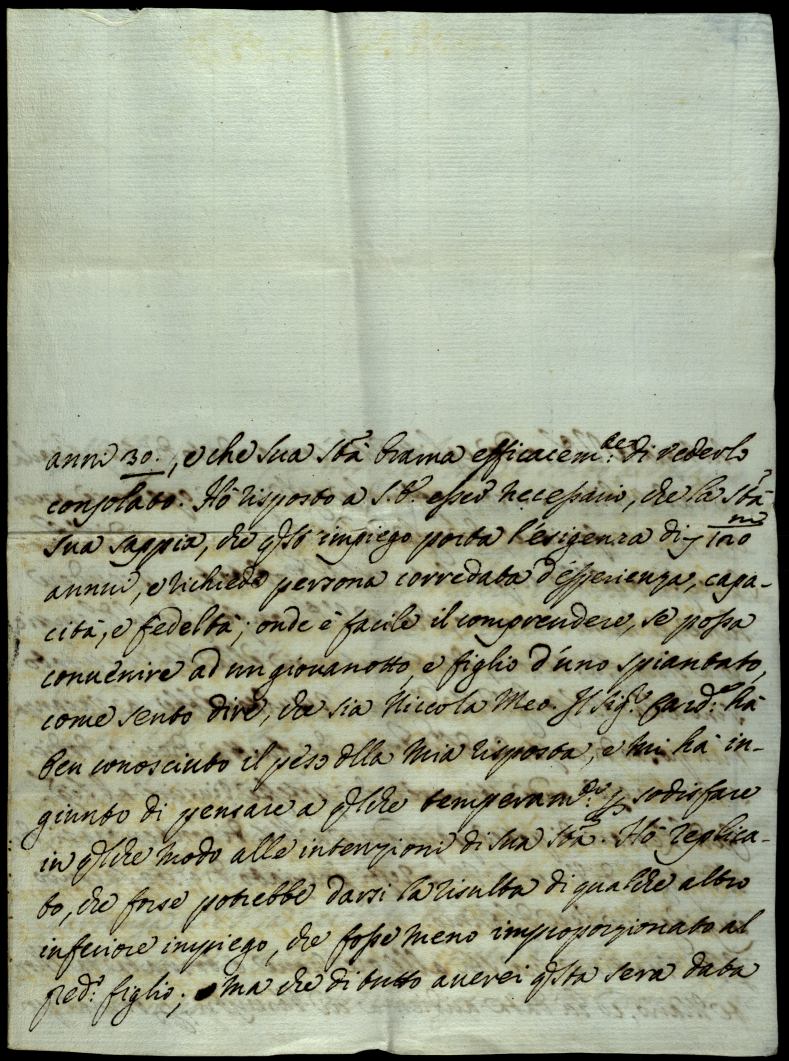 anni 30., e che Sua Stà brama efficacem.te di vederlo
consolato. Hò risposto a S. E. esser necessario, che la Stà
Sua sappia, che qsto impiego porta l'esigenza di
annui, e richiede persona corredata d'esperienza, capa-
cità, e fedeltà; onde è facile il comprendere, se possa
convenire ad un giovanotto, e figlio d'uno spiantato,
come sento dire, che sia Niccola Meo. Il Sig.r Card.le hà
ben conosciuto il peso dlla mia risposta, e mi hà in-
giunto di pensare a qlche temperam.to p sodisfare
in qlche modo alle intenzioni di Sua Stà. Hò replica-
to, che forse potrebbe darsi la risulta di qualche altro
inferiore impiego, che fosse meno improporzionato al
pred.o figlio; ma che di tutto averei qsta sera data